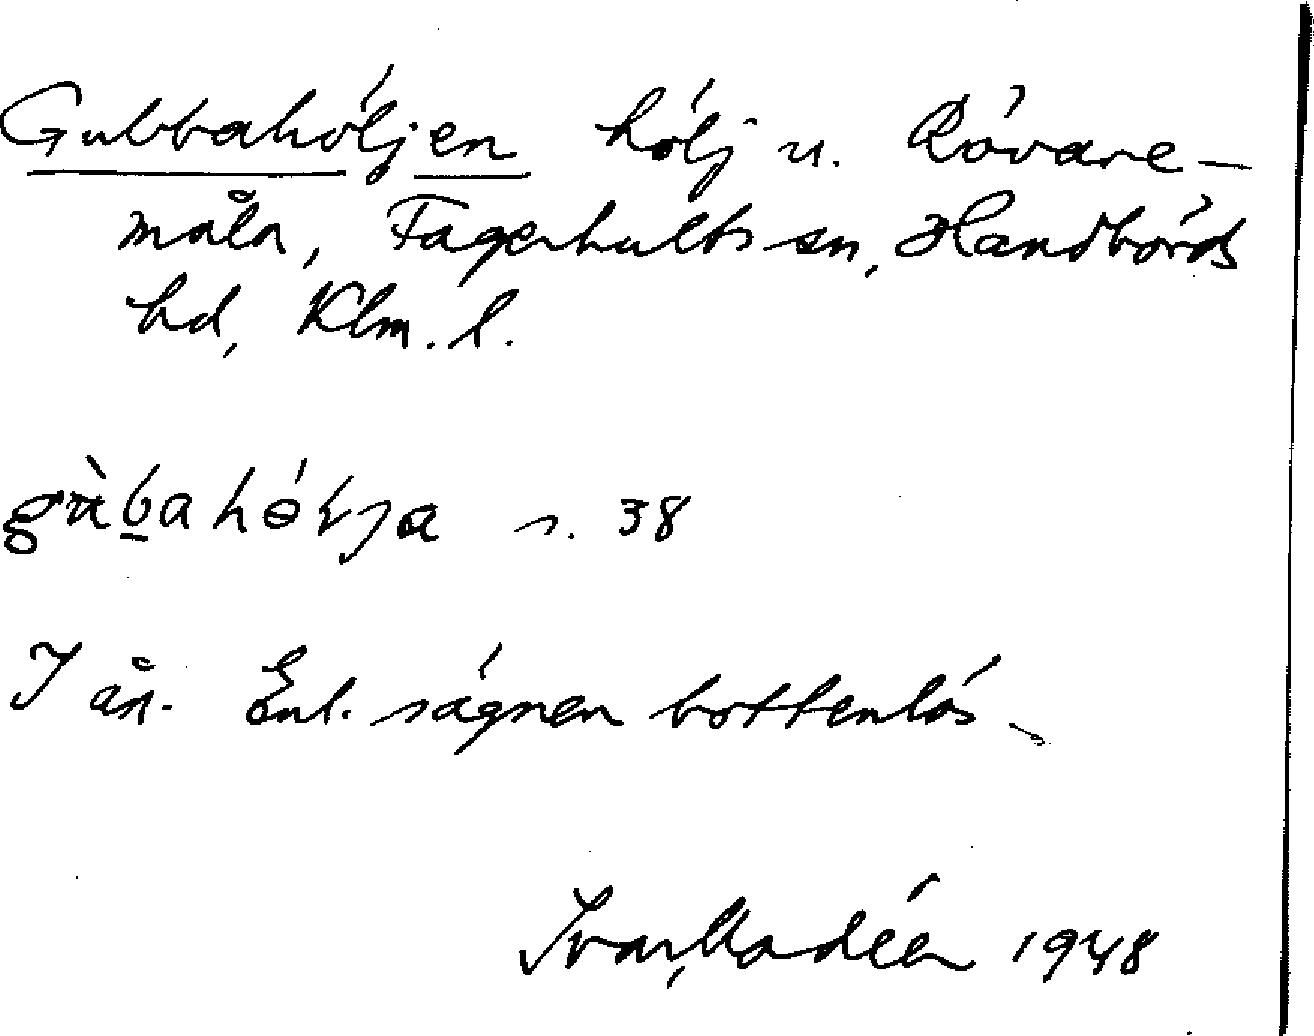 Gubbahöljen hölj u. Rövare-
måla, Fagerhults sn, Handbörds
hd, Klm. l.
s. 38
I ån. Enl. sägnen bottenlös.
Ivar Modéer 1948